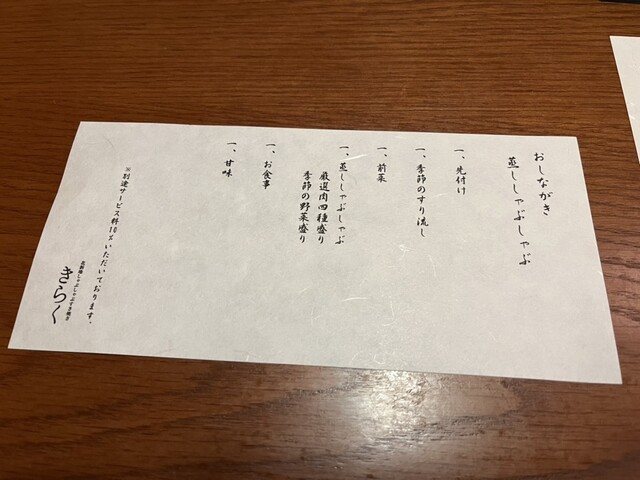 おしながき
蒸ししゃぶしゃぶ
一、先付け
一、季節のすり流し
一、前菜
一、蒸ししゃぶしゃぶ
厳選肉四種盛り
季節の野菜盛り
一、お食事
一、甘味
※別途サービス料10%いただいております。
きらく